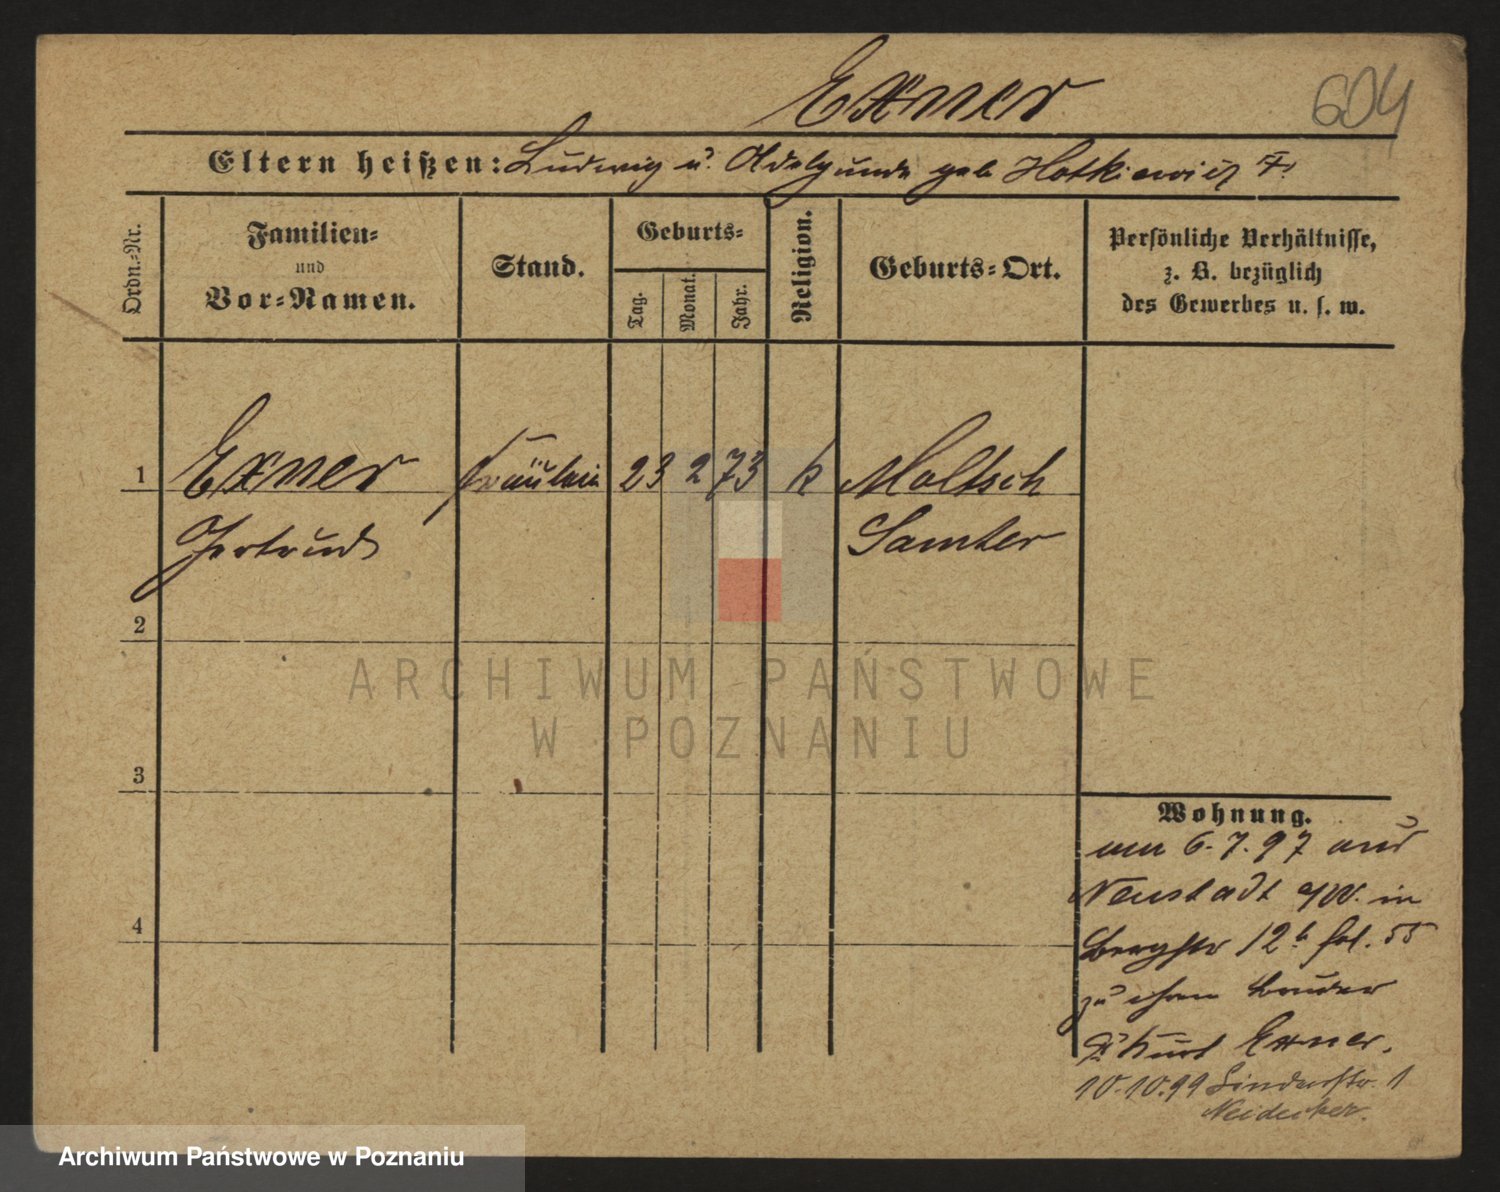 Exner
604
Eltern heißen: Ludwig u. Adelgunde geb Hotkiewicz
Ordn.-Nr.
Familien-
und
Vor-Namen.
Stand.
Geburts-
Tag.
Monat.
Jahr.
Religion.
Geburts-Ort.
Persönliche Verhältnisse,
z. B. bezüglich
des Gewerbes u. s. w.
1 Exner Fräulein 23 2 73 k Moltsch
Gertrud Samter
2
3
4
ARCHIWUM PAŃSTWOWE
W POZNANIU
Wohnung.
6.7.97 aus
Neustadt a/W. in
Bergstr 12 b fol. 55
zu ihrem Bruder
Kurt Exner.
10.10.99 Lindenstr. 1
Neidecker.
Archiwum Państwowe w Poznaniu